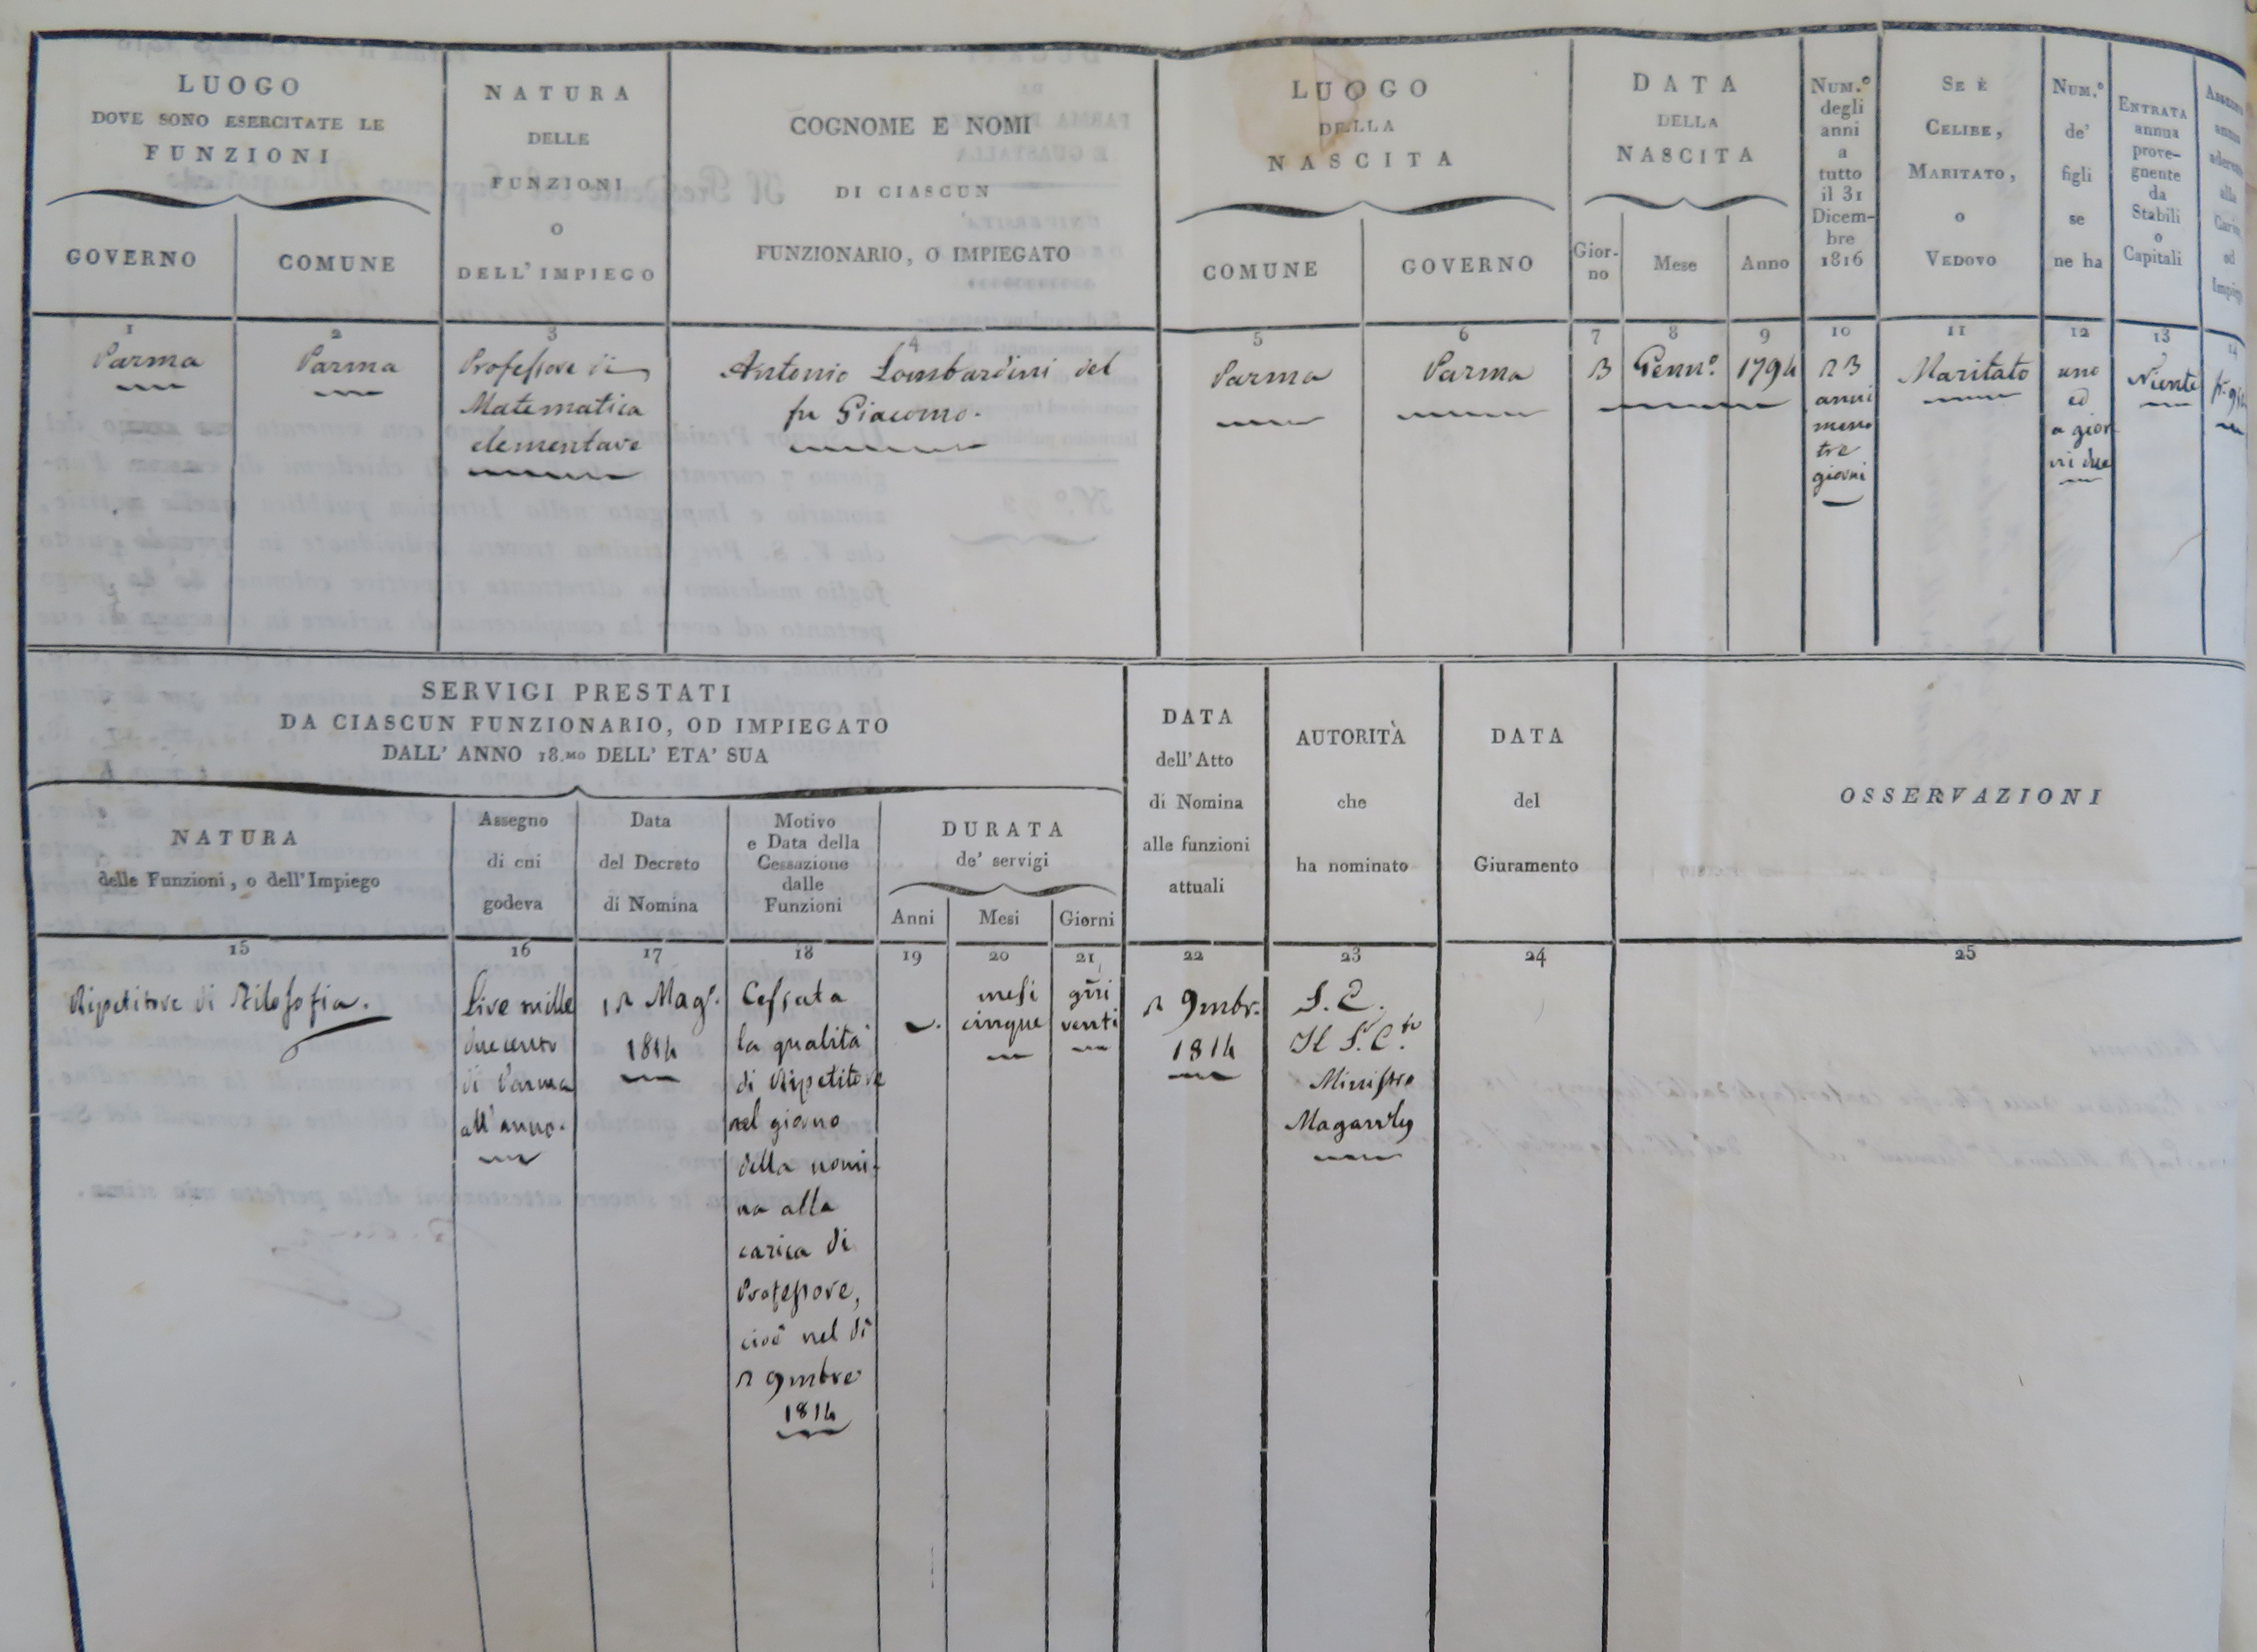 LUOGO
DOVE SONO ESERCITATE LE
FUNZIONI
GOVERNO
COMUNE
NATURA
DELLE
FUNZIONI
O
DELL' IMPIEGO
COGNOME E NOMI
DI CIASCUN
FUNZIONARIO, O IMPIEGATO
LUOGO
DELLA
NASCITA
COMUNE
GOVERNO
DATA
DELLA
NASCITA
Gior-
no
Mese
Anno
NUM.º
degli
anni
a
tutto
il 31
Dicem-
bre
1816
SE È
CELIBE,
MARITATO,
O
VEDOVO
NUM.º
de'
figli
se
ne ha
ENTRATA
annua
prove-
gnente
da
Stabili
o
Capitali
1
2
3
4
5
6
7
8
9
10
11
12
13
14
Parma
Parma
Professore di
Matematica
elementare
Antonio Lombardini del
fu Giacomo.
Parma
Parma
3
Genn.º
1794
23
anni
meno
tre
giorni
Maritato
uno
ed
a gior
ni due
Niente
SERVIGI PRESTATI
DA CIASCUN FUNZIONARIO, OD IMPIEGATO
DALL' ANNO 18.MO DELL' ETA' SUA
NATURA
delle Funzioni, o dell'Impiego
Assegno
di cui
godeva
Data
del Decreto
di Nomina
Motivo
e Data della
Cessazione
dalle
Funzioni
DURATA
de' servigi
Anni
Mesi
Giorni
DATA
dell'Atto
di Nomina
alle funzioni
attuali
AUTORITÀ
che
ha nominato
DATA
del
Giuramento
OSSERVAZIONI
15
16
17
18
19
20
21
22
23
24
25
Ripetitore di Filosofia.
Live mille
duecento
di Parma
all'anno.
12 Magº.
1814
Cessata
la qualità
di Ripetitore
nel giorno
della nomi-
na alla
carica di
Professore,
cioè nel dì
2 9mbre
1814
mesi
cinque
gñi
venti
2 9mbr.
1814
S. E.
Il S.r C.te
Ministro
Magawly